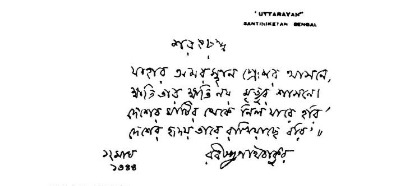 "UTTARAYAN"
SANTINIKETAN BENGAL
শরৎচন্দ্র
যাহার অমর স্থান প্রেমের আসনে,
ক্ষতি তার ক্ষতি নয় মৃত্যুর শাসনে।
দেশের মাটির থেকে নিল যারে হরি
দেশের হৃদয় তারে রাখিয়াছে বরি।।
১২ মাঘ
১৩৪৪
রবীন্দ্রনাথ ঠাকুর